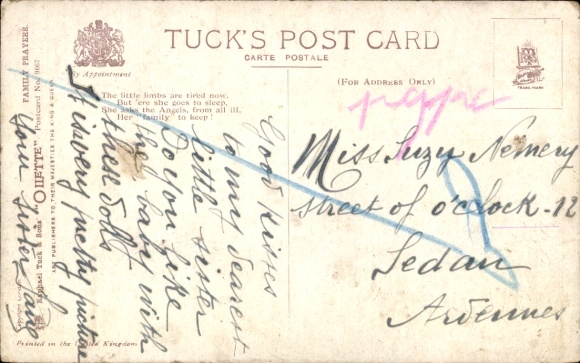 TUCK'S POST CARD
CARTE POSTALE
By Appointment
(FOR ADDRESS ONLY)
TRADE MARK
FAMILY PRAYERS.
"OILETTE" Postcard No. 9667
Raphael Tuck & Sons'
ART PUBLISHERS TO THEIR MAJESTIES THE KING & QUEEN
The little limbs are tired now,
But 'ere she goes to sleep,
She asks the Angels, from all ill,
Her "family" to keep!
Good kisses
to my dearest
little sister
Do you like
the baby with
these dolls
It is very pretty picture
Your sister
Miss Suzy Nemery
street of o'clock - 12
Sedan
Ardennes
Printed in the United Kingdom